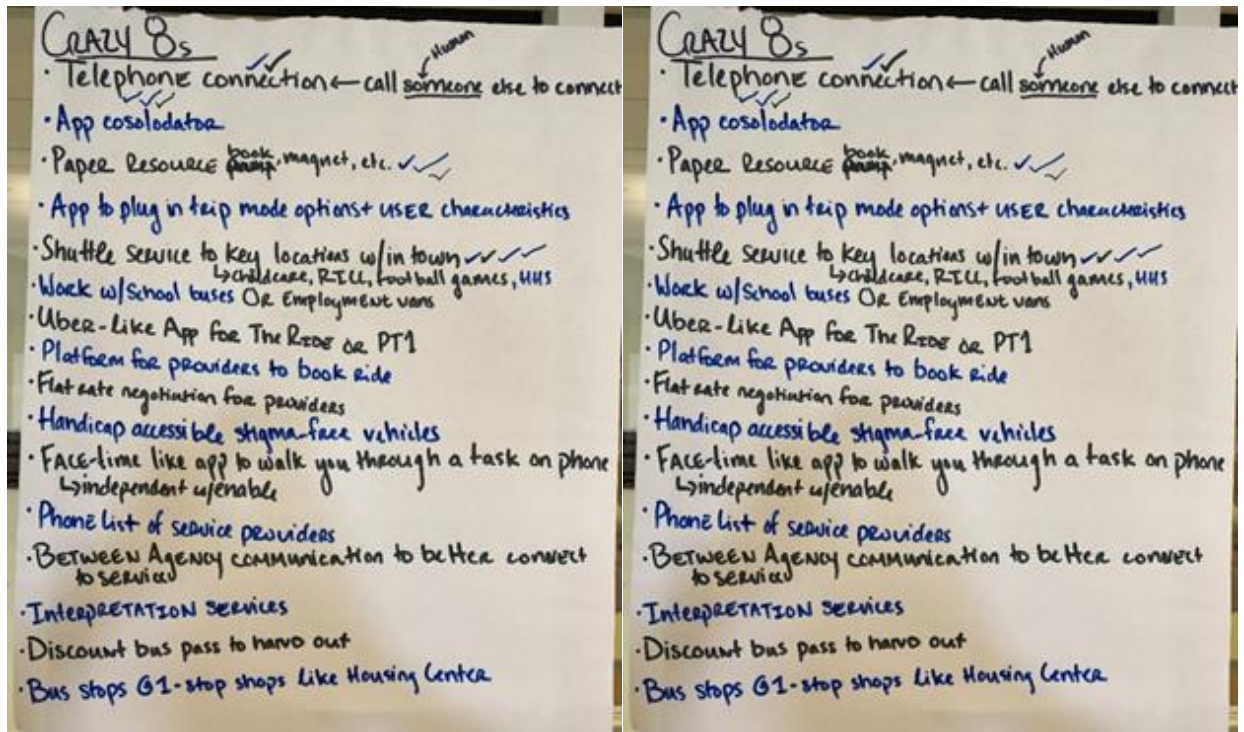 CRAZY 8s
Human
· Telephone connection ← call someone else to connect
· App cosolodator
book
· Paper Resource, magnet, etc. ✓✓✓
· App to plug in trip mode options + USER characteristics
· Shuttle service to key locations w/in town ✓✓✓✓
↳ childcare, RICC, football games, HHS
· Work w/School buses OR Employment vans
· Uber-Like App for The RIDE or PT1
· Platform for providers to book ride
· Flat rate negotiation for providers
· Handicap accessible stigma-free vehicles
· FACE-time like app to walk you through a task on phone
↳ independent w/enable
· Phone list of service providers
· BETWEEN AGENCY communication to better connect
to services
· INTERPRETATION SERVICES
· Discount bus pass to hand out
· Bus stops @ 1-stop shops like Housing Center
CRAZY 8s
Human
· Telephone connection ← call someone else to connect
· App cosolodator
book
· Paper Resource, magnet, etc. ✓✓✓
· App to plug in trip mode options + USER characteristics
· Shuttle service to key locations w/in town ✓✓✓✓
↳ childcare, RICC, football games, HHS
· Work w/School buses OR Employment vans
· Uber-Like App for The RIDE or PT1
· Platform for providers to book ride
· Flat rate negotiation for providers
· Handicap accessible stigma-free vehicles
· FACE-time like app to walk you through a task on phone
↳ independent w/enable
· Phone list of service providers
· BETWEEN AGENCY communication to better connect
to services
· INTERPRETATION SERVICES
· Discount bus pass to hand out
· Bus stops @ 1-stop shops like Housing Center